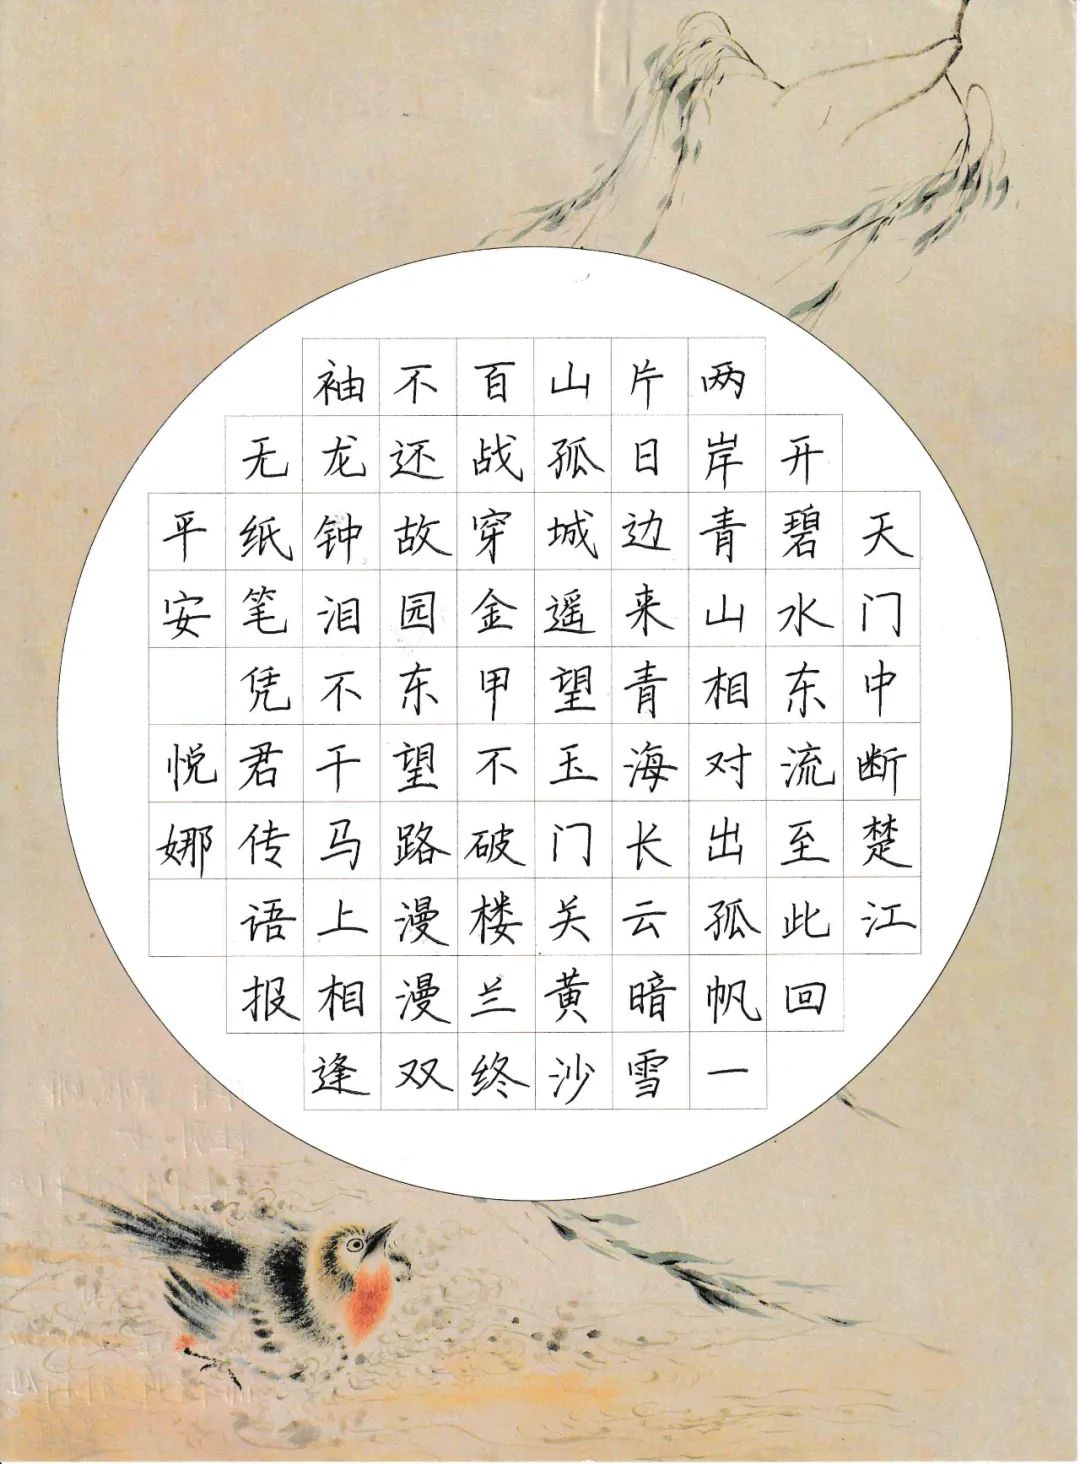 天门中断楚江
开碧水东流至此回
两岸青山相对出孤帆一
片日边来青海长云暗雪
山孤城遥望玉门关黄沙
百战穿金甲不破楼兰终
不还故园东望路漫漫双
袖龙钟泪不干马上相逢
无纸笔凭君传语报
平安 悦娜